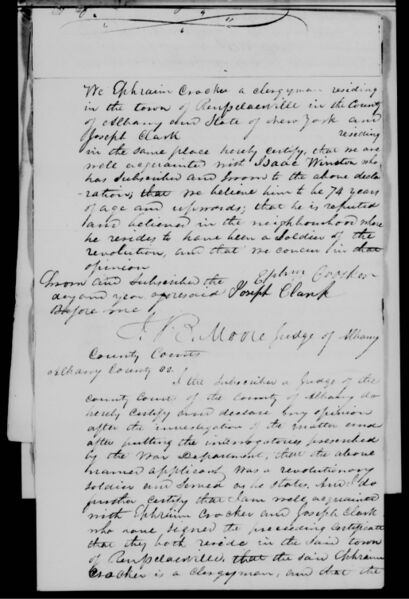 We Ephraim Crocker a clergyman residing
in the town of Rensselaerville in the County
of Albany and State of New York and
Joseph Clark residing
in the same place hereby certify, that we are
well acquainted with Isaac Winston who
has Subscribed and Sworn to the above decla
ration; that we believe him to be 74 years
of age and upwards; that he is reputed
and believed in the neighbourhood where
he resides to have been a Soldier of the
revolution, and that we concur in that
opinion
Sworn and Subscribed the Ephm Crocker
day and year aforesaid Joseph Clark
Before me
Moore Judge of Albany
County Courts
Albany County ss. I the Subscriber a Judge of the
County Court of the County of Albany do
hereby certify and declare my opinion
after the investigation of the matter and
after putting the interrogatories prescribed
by the War Department, that the above
named applicant, was a revolutionary
soldier and served as he states, And do
further certify that I am well acquainted
with Ephraim Crocker and Joseph Clark
who have signed the preceding certificate
that they both reside in the said town
of Rensselaerville, that the said Ephraim
Crocker is a clergyman, and that the